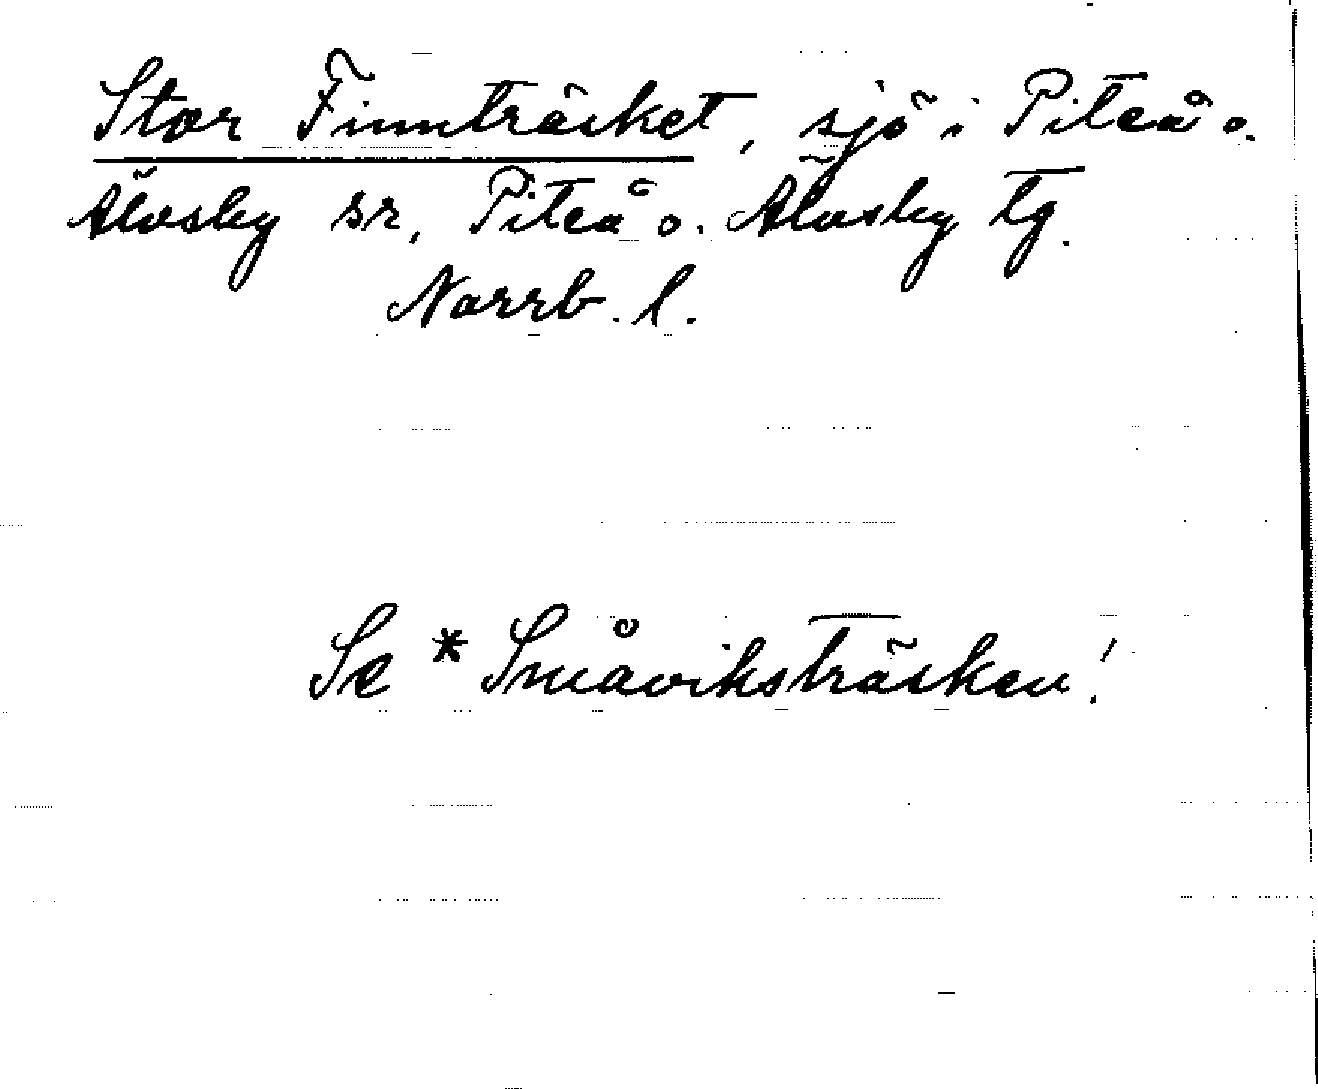 Stor Finnträsket, sjö i Piteå o.
Älvsby sr, Piteå o. Älvsby tg.
Norrb. l.
Se * Småviksträsken!